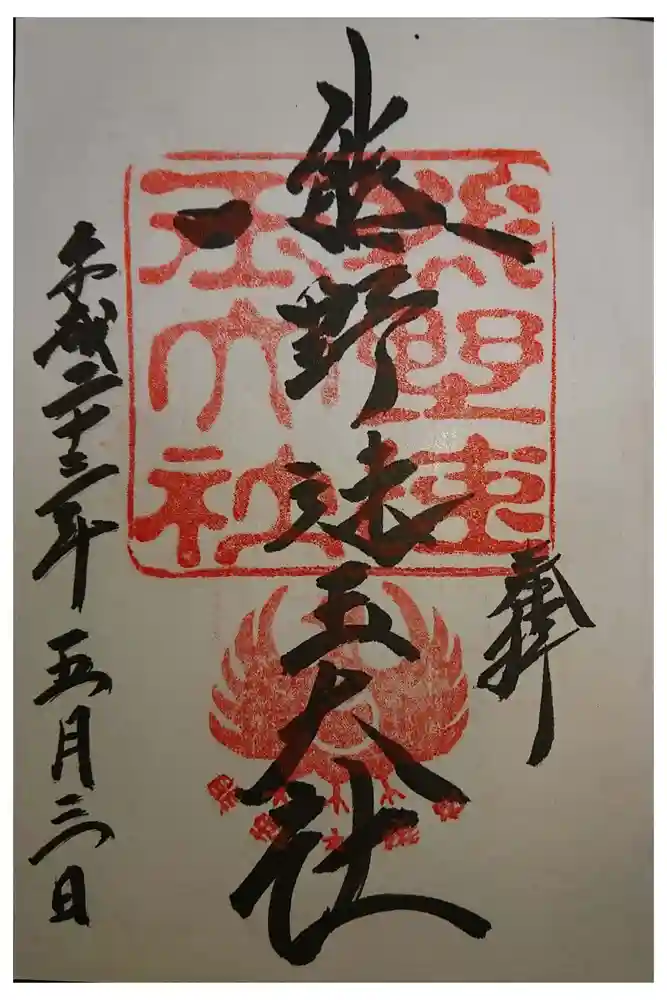 奉拝
熊野速玉大社
熊野速
玉大社
平成二十三年五月三日